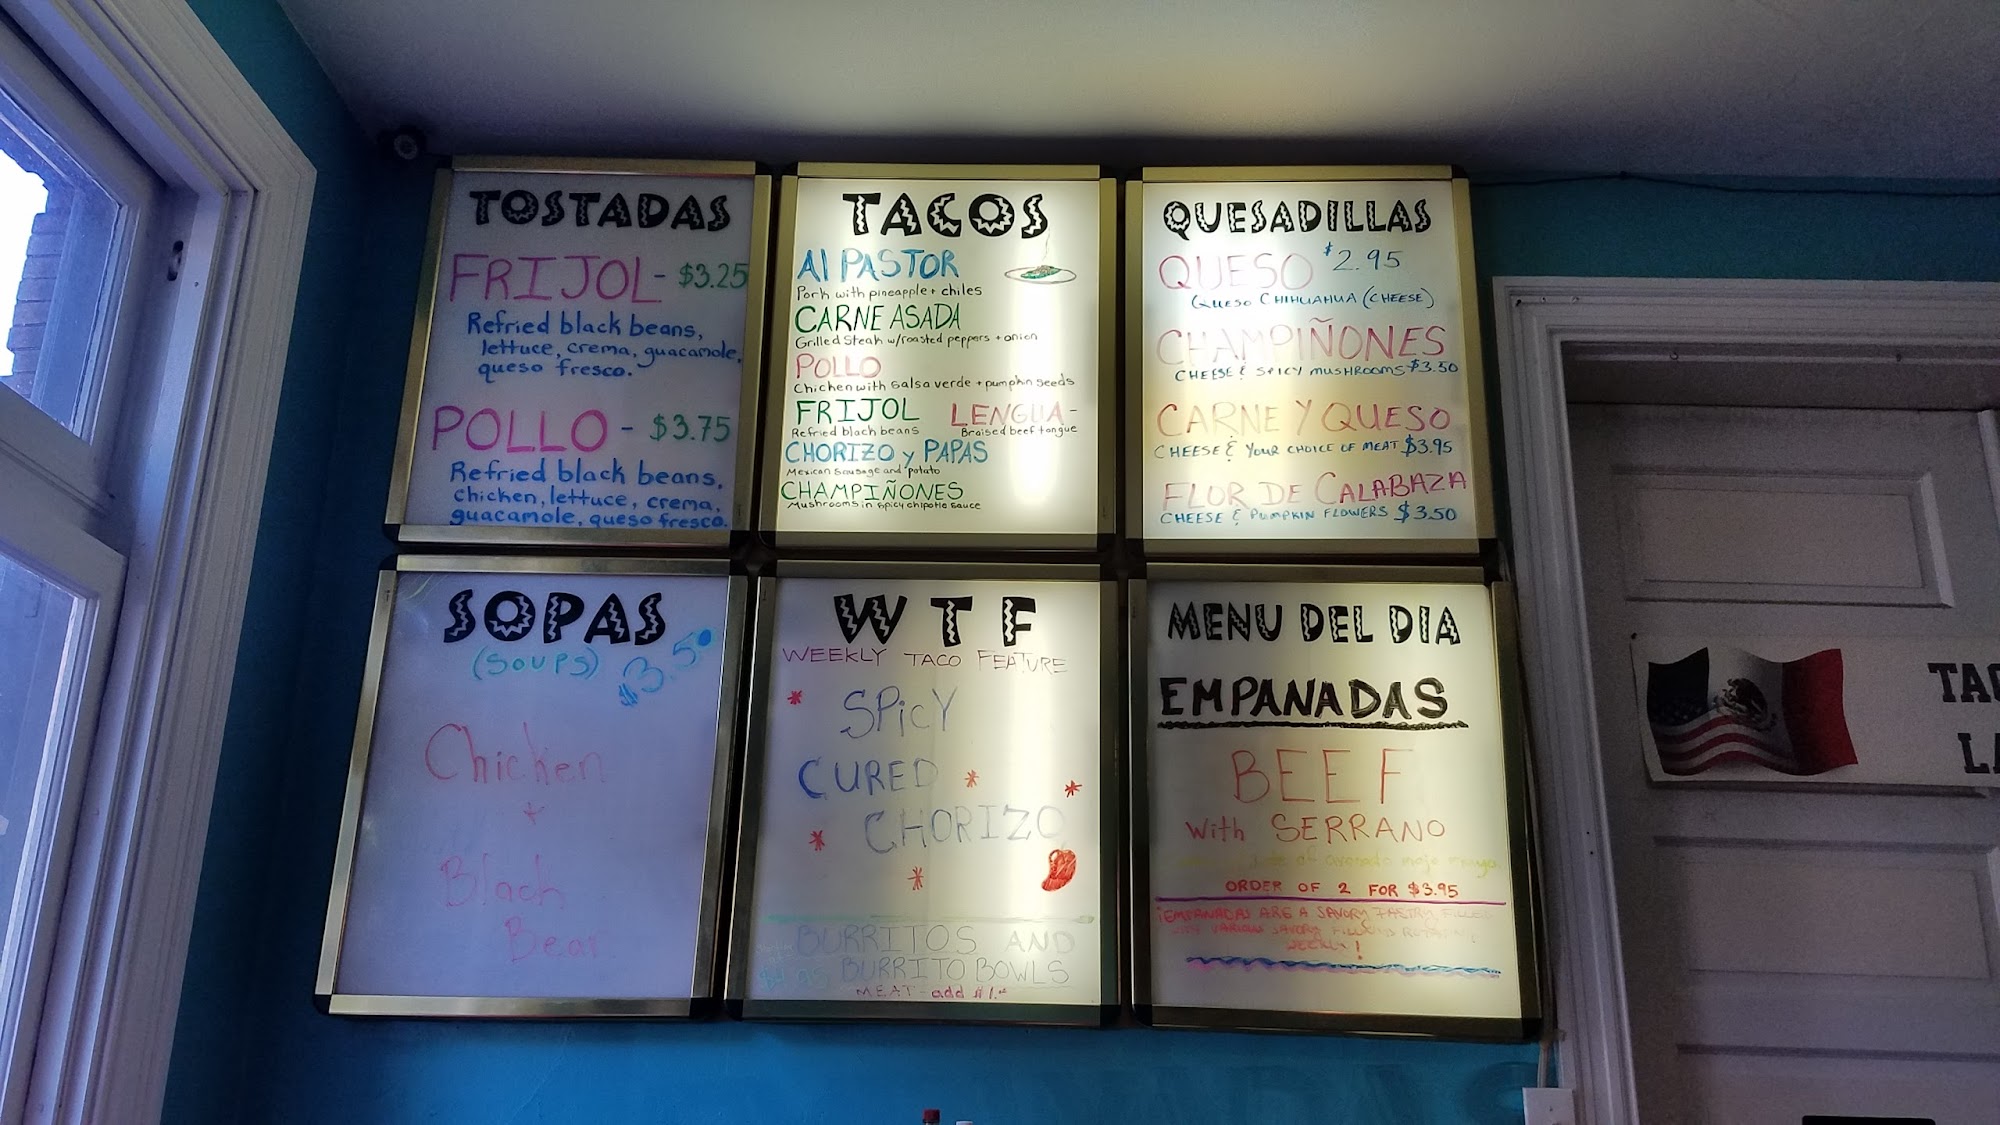 TOSTADAS
FRIJOL - $3.25
Refried black beans,
lettuce, crema, guacamole,
queso fresco.
POLLO - $3.75
Refried black beans,
chicken, lettuce, crema,
guacamole, queso fresco.
TACOS
Al PASTOR
Pork with pineapple + chiles
CARNE ASADA
Grilled Steak w/roasted peppers + onion
POLLO
Chicken with salsa verde + pumpkin seeds
FRIJOL LENGUA-
Refried black beans Braised beef tongue
CHORIZO y PAPAS
Mexican sausage and potato
CHAMPIÑONES
Mushrooms in spicy chipotle sauce
QUESADILLAS
QUESO $2.95
QUESO CHIHUAHUA (CHEESE)
CHAMPIÑONES
CHEESE & SPICY MUSHROOMS $3.50
CARNE Y QUESO
CHEESE & YOUR CHOICE OF MEAT $3.95
FLOR DE CALABAZA
CHEESE & PUMPKIN FLOWERS $3.50
SOPAS
(SOUPS) $3.50
Chicken
*
Black
Bean
WTF
WEEKLY TACO FEATURE
SPicY
CURED
CHORIZO
BURRITOS AND
BURRITO BOWLS
MEAT - add $1.00
MENU DEL DIA
EMPANADAS
BEEF
With SERRANO
of avocado mojo
ORDER OF 2 FOR $3.95
¡EMPANADAS ARE A SAVORY PASTRY FILLED
WITH VARIOUS SAVORY FILLINGS ROTATING
WEEKLY!
TAC
LA